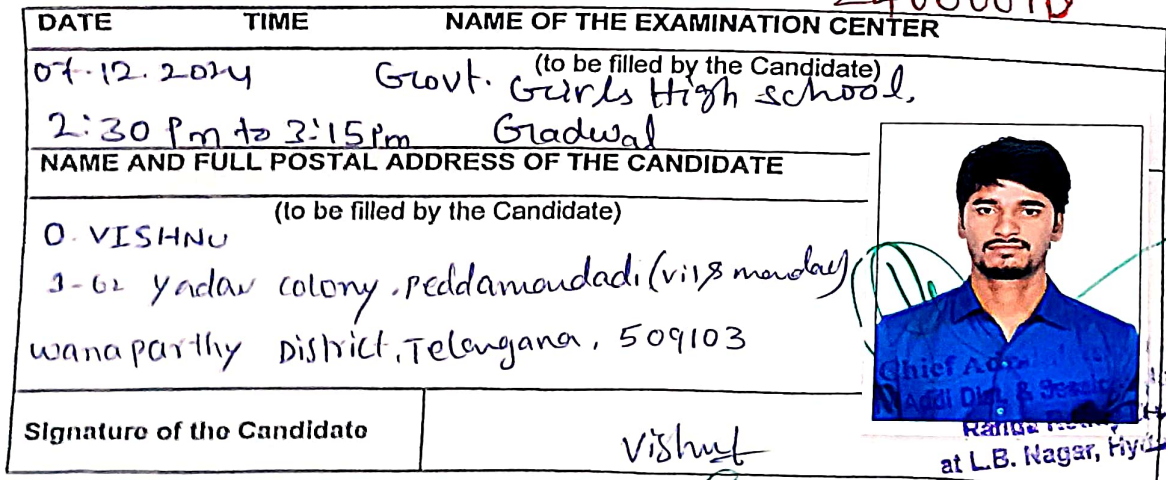 DATE TIME NAME OF THE EXAMINATION CENTER
(to be filled by the Candidate)
07.12.2024 Govt. Girls High school,
2:30 Pm to 3:15 Pm Gradwal
NAME AND FULL POSTAL ADDRESS OF THE CANDIDATE
(to be filled by the Candidate)
O. VISHNU
3-62 Yadav colony, Peddamandadi (vil & mandal)
wanaparthy District, Telangana, 509103
Chief
Addl Dist. &
at L.B. Nagar,
Signature of the Candidate
Vishnu